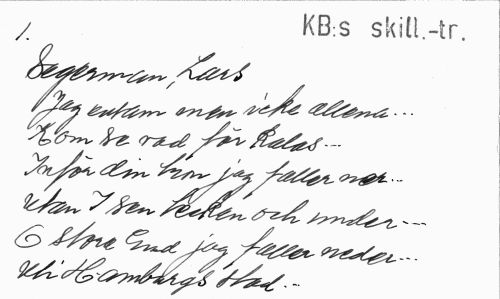 1.
KB:s skill.-tr.
Segerman, Lars
Jag ensam men icke allena...
Kom se vad för Kalas...
Inför din tron jag faller ner...
Utan I sen tecken och under---
O store Gud jag faller neder...
Uti Hamburgs stad...